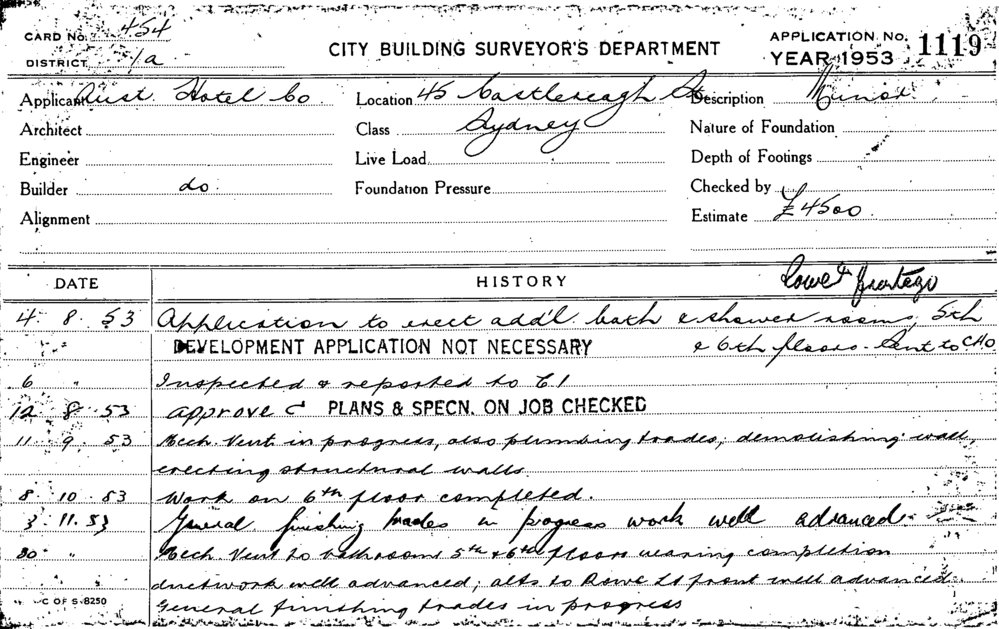 CARD No. 454
DISTRICT 1a
CITY BUILDING SURVEYOR'S DEPARTMENT
APPLICATION No. 1119
YEAR 1953
Applicant Aust. Hotel Co Location 45 Castlereagh St Description Minor
Architect Class Sydney Nature of Foundation
Engineer Live Load Depth of Footings
Builder do. Foundation Pressure Checked by
Alignment Estimate £4500
DATE HISTORY Rowe St
4. 8. 53 Application to erect add'l bath & shower rooms, 5th
DEVELOPMENT APPLICATION NOT NECESSARY & 6th floors. Sent to CHO
6 " Inspected & reported to C1
12 8 53 approve C PLANS & SPECN. ON JOB CHECKED
11 9. 53 Mech. Vent in progress, also plumbing trades; demolishing wall,
erecting structural walls
8. 10. 53 Work on 6th floor completed.
3. 11. 53 General finishing trades in progress work well advanced.
20. " Mech. Vent to bathrooms 5th & 6th floors nearing completion
ductwork well advanced; alts to Rowe St front well advanced.
General finishing trades in progress
C OF S-8250